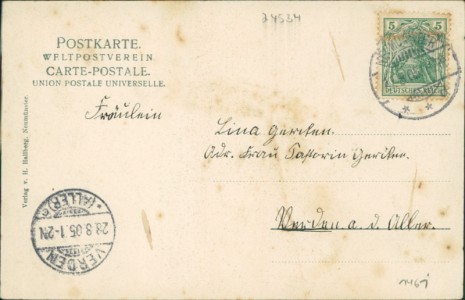 24534
POSTKARTE.
WELTPOSTVEREIN.
CARTE-POSTALE.
UNION POSTALE UNIVERSELLE.
5 5
DEUTSCHES
Fräulein
Lina Gerken.
Adr. Frau Pastorin Gerken.
Verden a. d. Aller.
Verlag v. R. Hallberg, Neumünster.
VERDEN
28.8.05.1-2N
(ALLER)